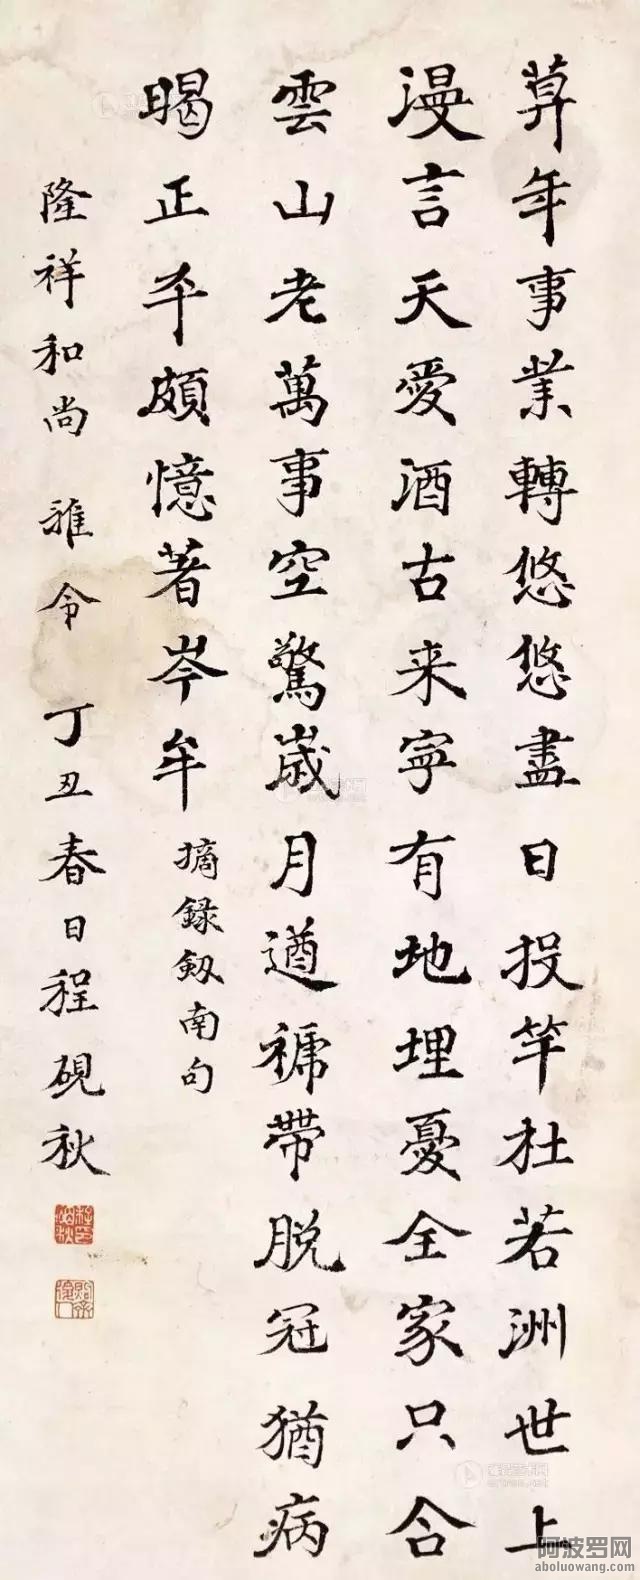 莫年事業轉悠悠盡日投竿杜若洲世上
漫言天愛酒古来寧有地埋憂全家只合
雲山老萬事空驚歲月遒褫帶脱冠猶病
暍正平頗憶著岑牟
摘録劔南句
隆祥和尚雅令丁丑春日程硯秋
阿波罗网
aboluowang.com